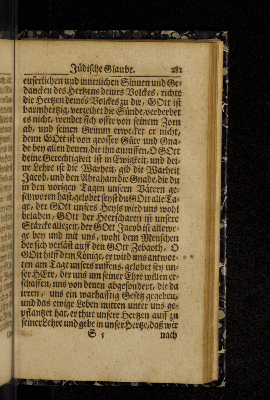 Jüdische Glaube. 281
eusserlichen und innerlichen Sinnen und Ge-
dancken des Hertzens deines Volckes, richte
die Hertzen deines Volckes zu dir, GOtt ist
barmhertzig, verzeihet die Sünde, verderbet
es nicht, wendet sich offte von seinem Zorn
ab, und seinen Grimm erwecket er nicht,
denn GOtt ist von grosser Güte und Gna-
de bey allen denen, die ihn anruffen, O GOtt
deine Gerechtigkeit ist in Ewigkeit, und dei-
ne Lehre ist die Warheit, gib die Warheit
Jacob, und den Abraham die Gnade, die du
in den vorigen Tagen unsern Vätern ge-
schworen hast, gelobet seyst du GOtt alle Ta-
ge, der GOtt unsers Heyls wird uns wohl
beladen, GOtt der Heerscharen ist unsere
Stärcke allezeit, der GOtt Jacob ist allewe-
ge bey und mit uns, wohl dem Menschen
der sich verläst auff den GOtt Zebaoth, O
GOtt hilff dem Könige, er wird uns antwor-
ten am Tage unsers ruffens, gelobet sey un-
ser HErr, der uns um seiner Ehre willen er-
schaffen, uns von denen abgesondert, die da
irren, uns ein warhafftig Gesetz gegeben,
und das ewige Leben mitten unter uns ge-
pflantzet hat, er thue unsere Hertzen auff zu
seiner Lehre und gebe in unser Hertz, daß wir
S 5 nach